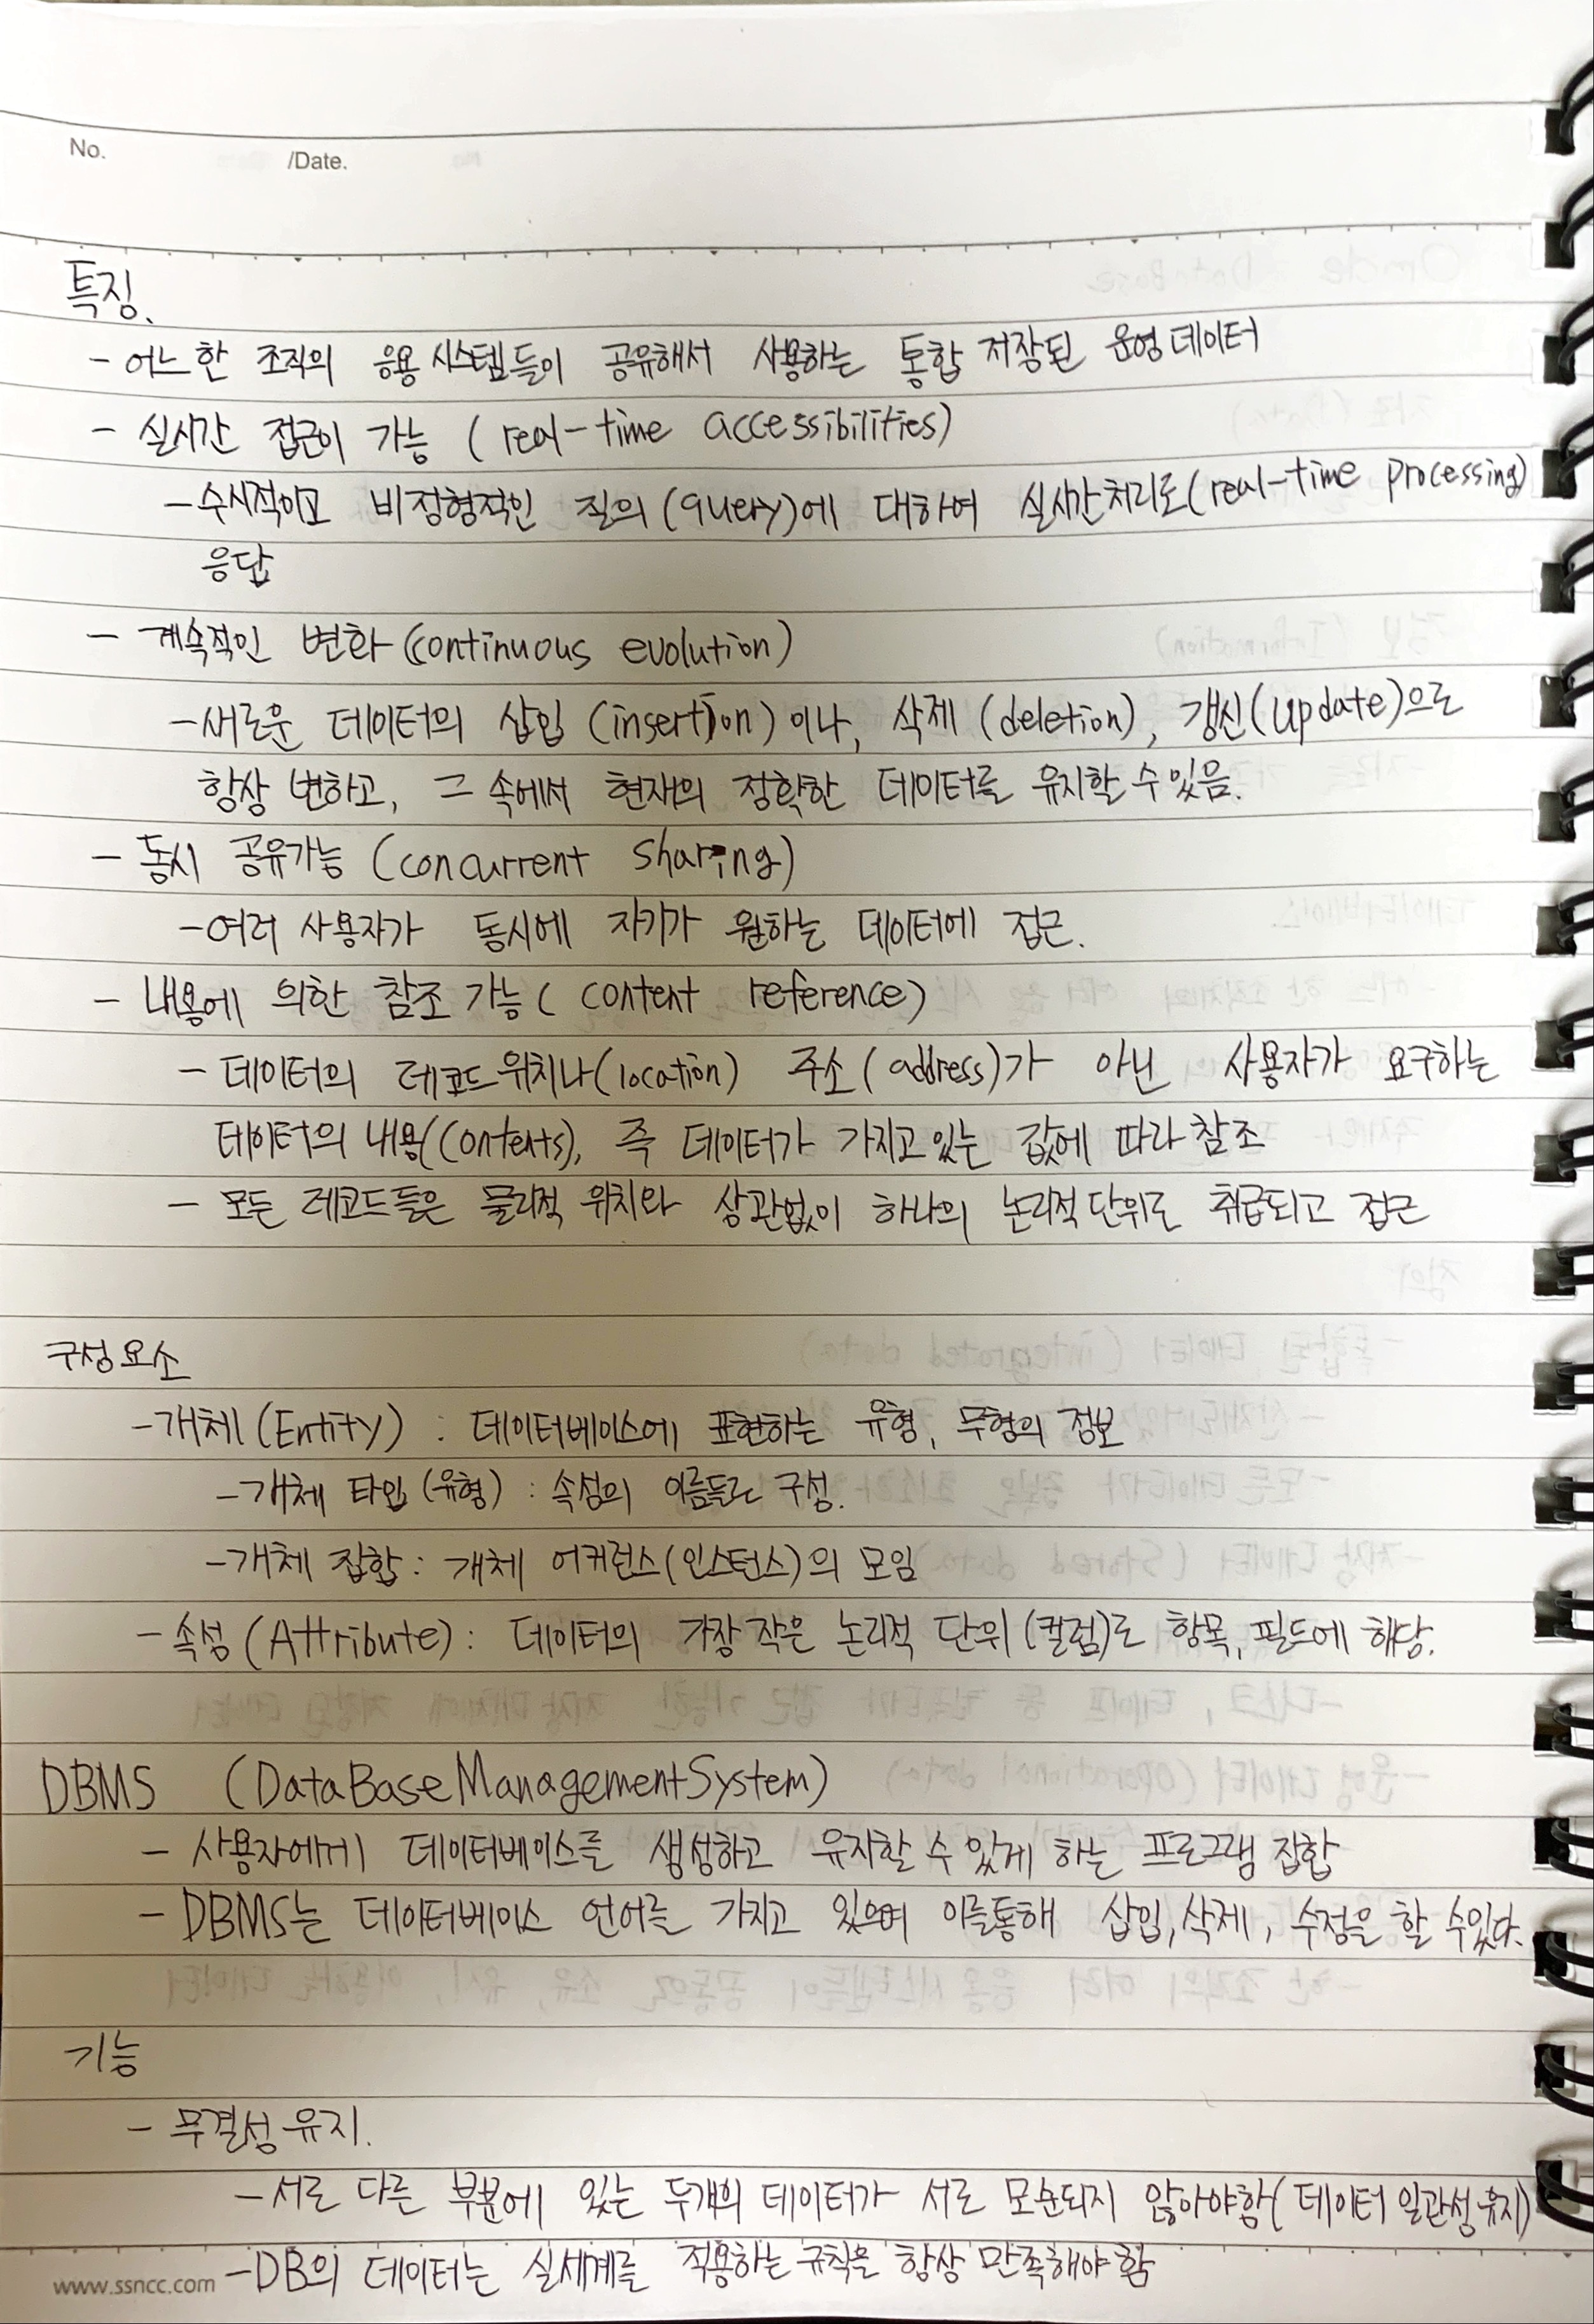 No. /Date.
특징.
- 어느한 조직의 응용시스템들이 공유해서 사용하는 통합 저장된 운영데이터
- 실시간 접근이 가능 (real-time accessibilities)
- 수시적이고 비정형적인 질의(query)에 대하여 실시간처리로(real-time processing)
응답
- 계속적인 변화(continuous evolution)
- 새로운 데이터의 삽입(insertion)이나, 삭제(deletion), 갱신(update)으로
항상 변하고, 그 속에서 현재의 정확한 데이터를 유지할수있음.
- 동시 공유가능 (concurrent sharing)
- 여러 사용자가 동시에 자기가 원하는 데이터에 접근.
- 내용에 의한 참조 가능( content reference)
- 데이터의 레코드위치나(location) 주소(address)가 아닌 사용자가 요구하는
데이터의 내용(contents), 즉 데이터가 가지고있는 값에 따라 참조
- 모든 레코드들은 물리적 위치와 상관없이 하나의 논리적단위로 취급되고 접근
구성요소
- 개체(Entity) : 데이터베이스에 표현하는 유형, 무형의 정보
- 개체 타입(유형) : 속성의 이름들로 구성.
- 개체 집합 : 개체 어커런스(인스턴스)의 모임
- 속성(Attribute) : 데이터의 가장 작은 논리적 단위(컬럼)로 항목, 필드에 해당.
DBMS (DataBaseManagementSystem)
- 사용자에게 데이터베이스를 생성하고 유지할 수 있게 하는 프로그램 집합
- DBMS는 데이터베이스 언어를 가지고 있으며 이를통해 삽입,삭제, 수정을 할 수있다.
기능
- 무결성유지.
- 서로 다른 부분에 있는 두개의 데이터가 서로 모순되지 않아야함(데이터 일관성유지)
- DB의 데이터는 실세계를 적용하는규칙을 항상 만족해야 함
www.ssncc.com